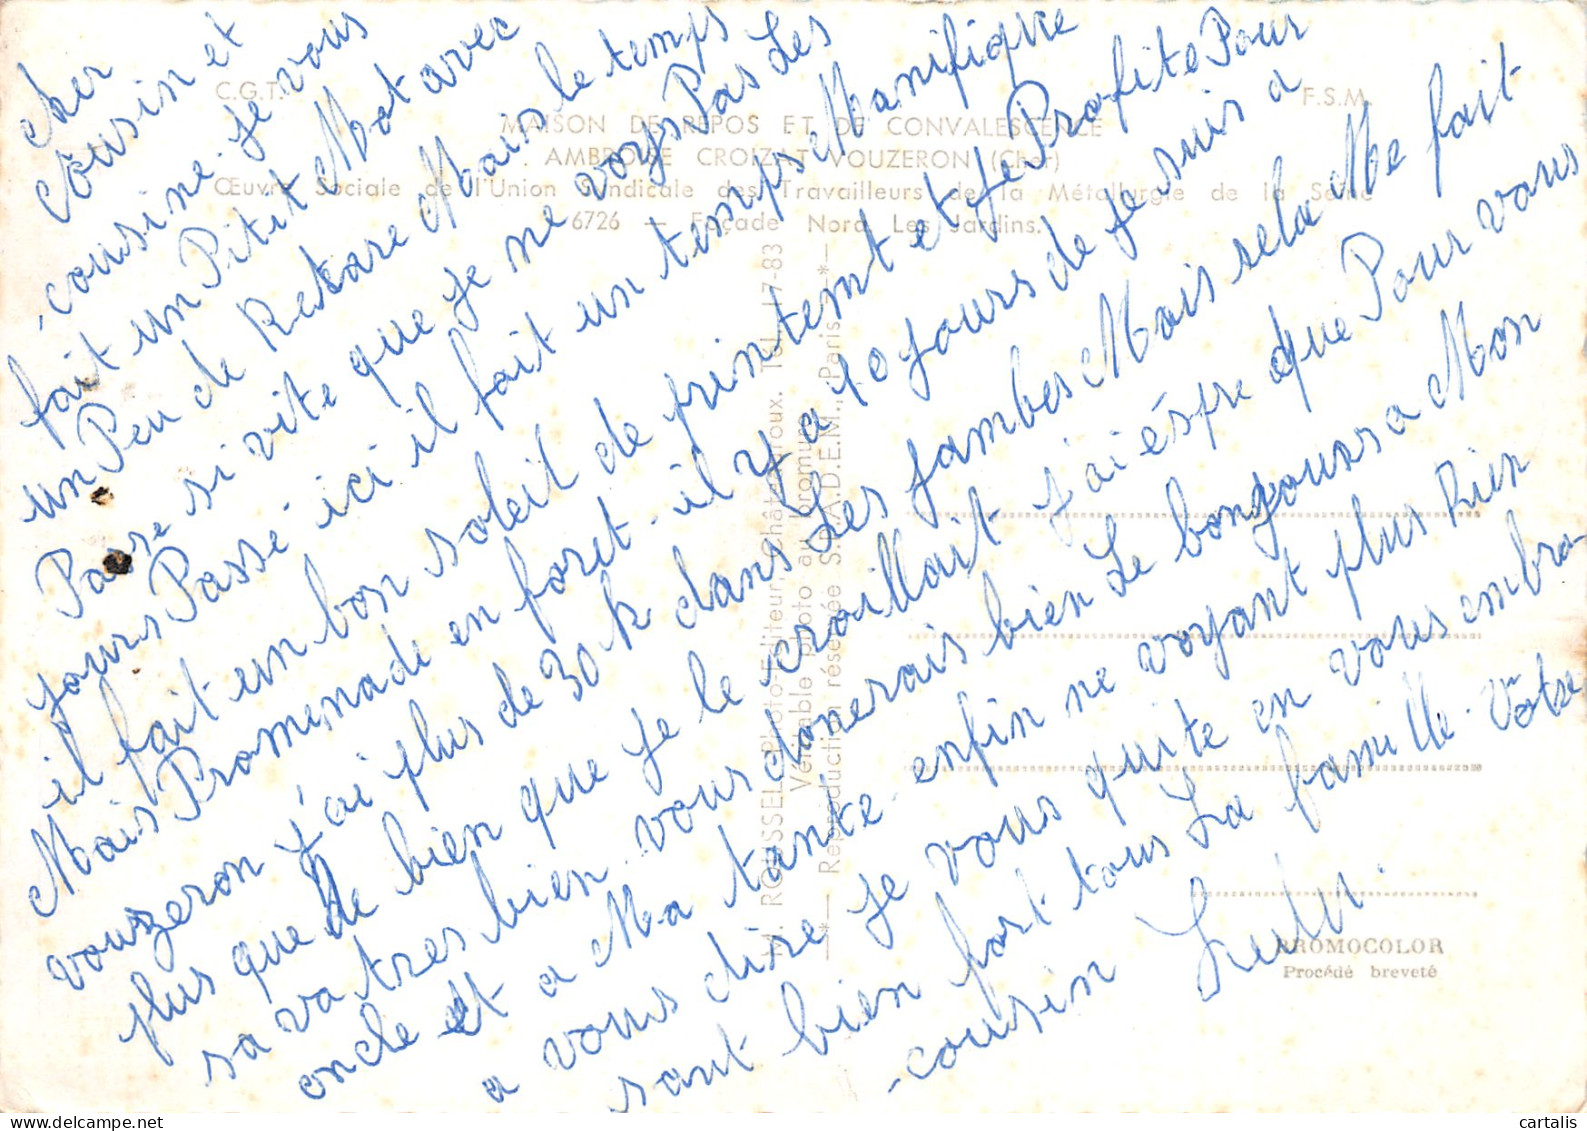 C.G.T.
F.S.M.
MAISON DE REPOS ET DE CONVALESCENCE
AMBROISE CROIZAT VOUZERON (Cher)
Œuvre Sociale de l'Union Syndicale des Travailleurs de la Métallurgie de la Seine
6726 — Façade Nord Les Jardins.
Cher
Cousin et
cousine. Je vous
fait un Pitit Mot avec
un Peu de Retare Mais le temps
Passe si vite que Je ne voys Pas Les
Jours Passé ici il fait un temps Manifique
il fait un bon soleil de printemt et Je Profite Pour
Mais Promenade en foret. il y a 10 Jours de Je suis a
vouzeron J'ai plus de 30 k dans Les Jambes Mais sela Me fait
plus que de bien que Je le croillait J'ai éspre que Pour vous
sa va tres bien vous donerais bien Le bonjours a Mon
oncle et a Ma tante enfin ne voyant plus Rien
a vous dire Je vous quite en vous embra-
sant bien fort tous La famille. Votre
-cousin Lulu.
M. ROUSSEL Photo-Editeur, Châteauroux. Tél. 17-83
Véritable photo au bromure
—*— Reproduction réservée S.P.A.D.E.M., Paris —*—
PROMOCOLOR
Procédé breveté
cartalis